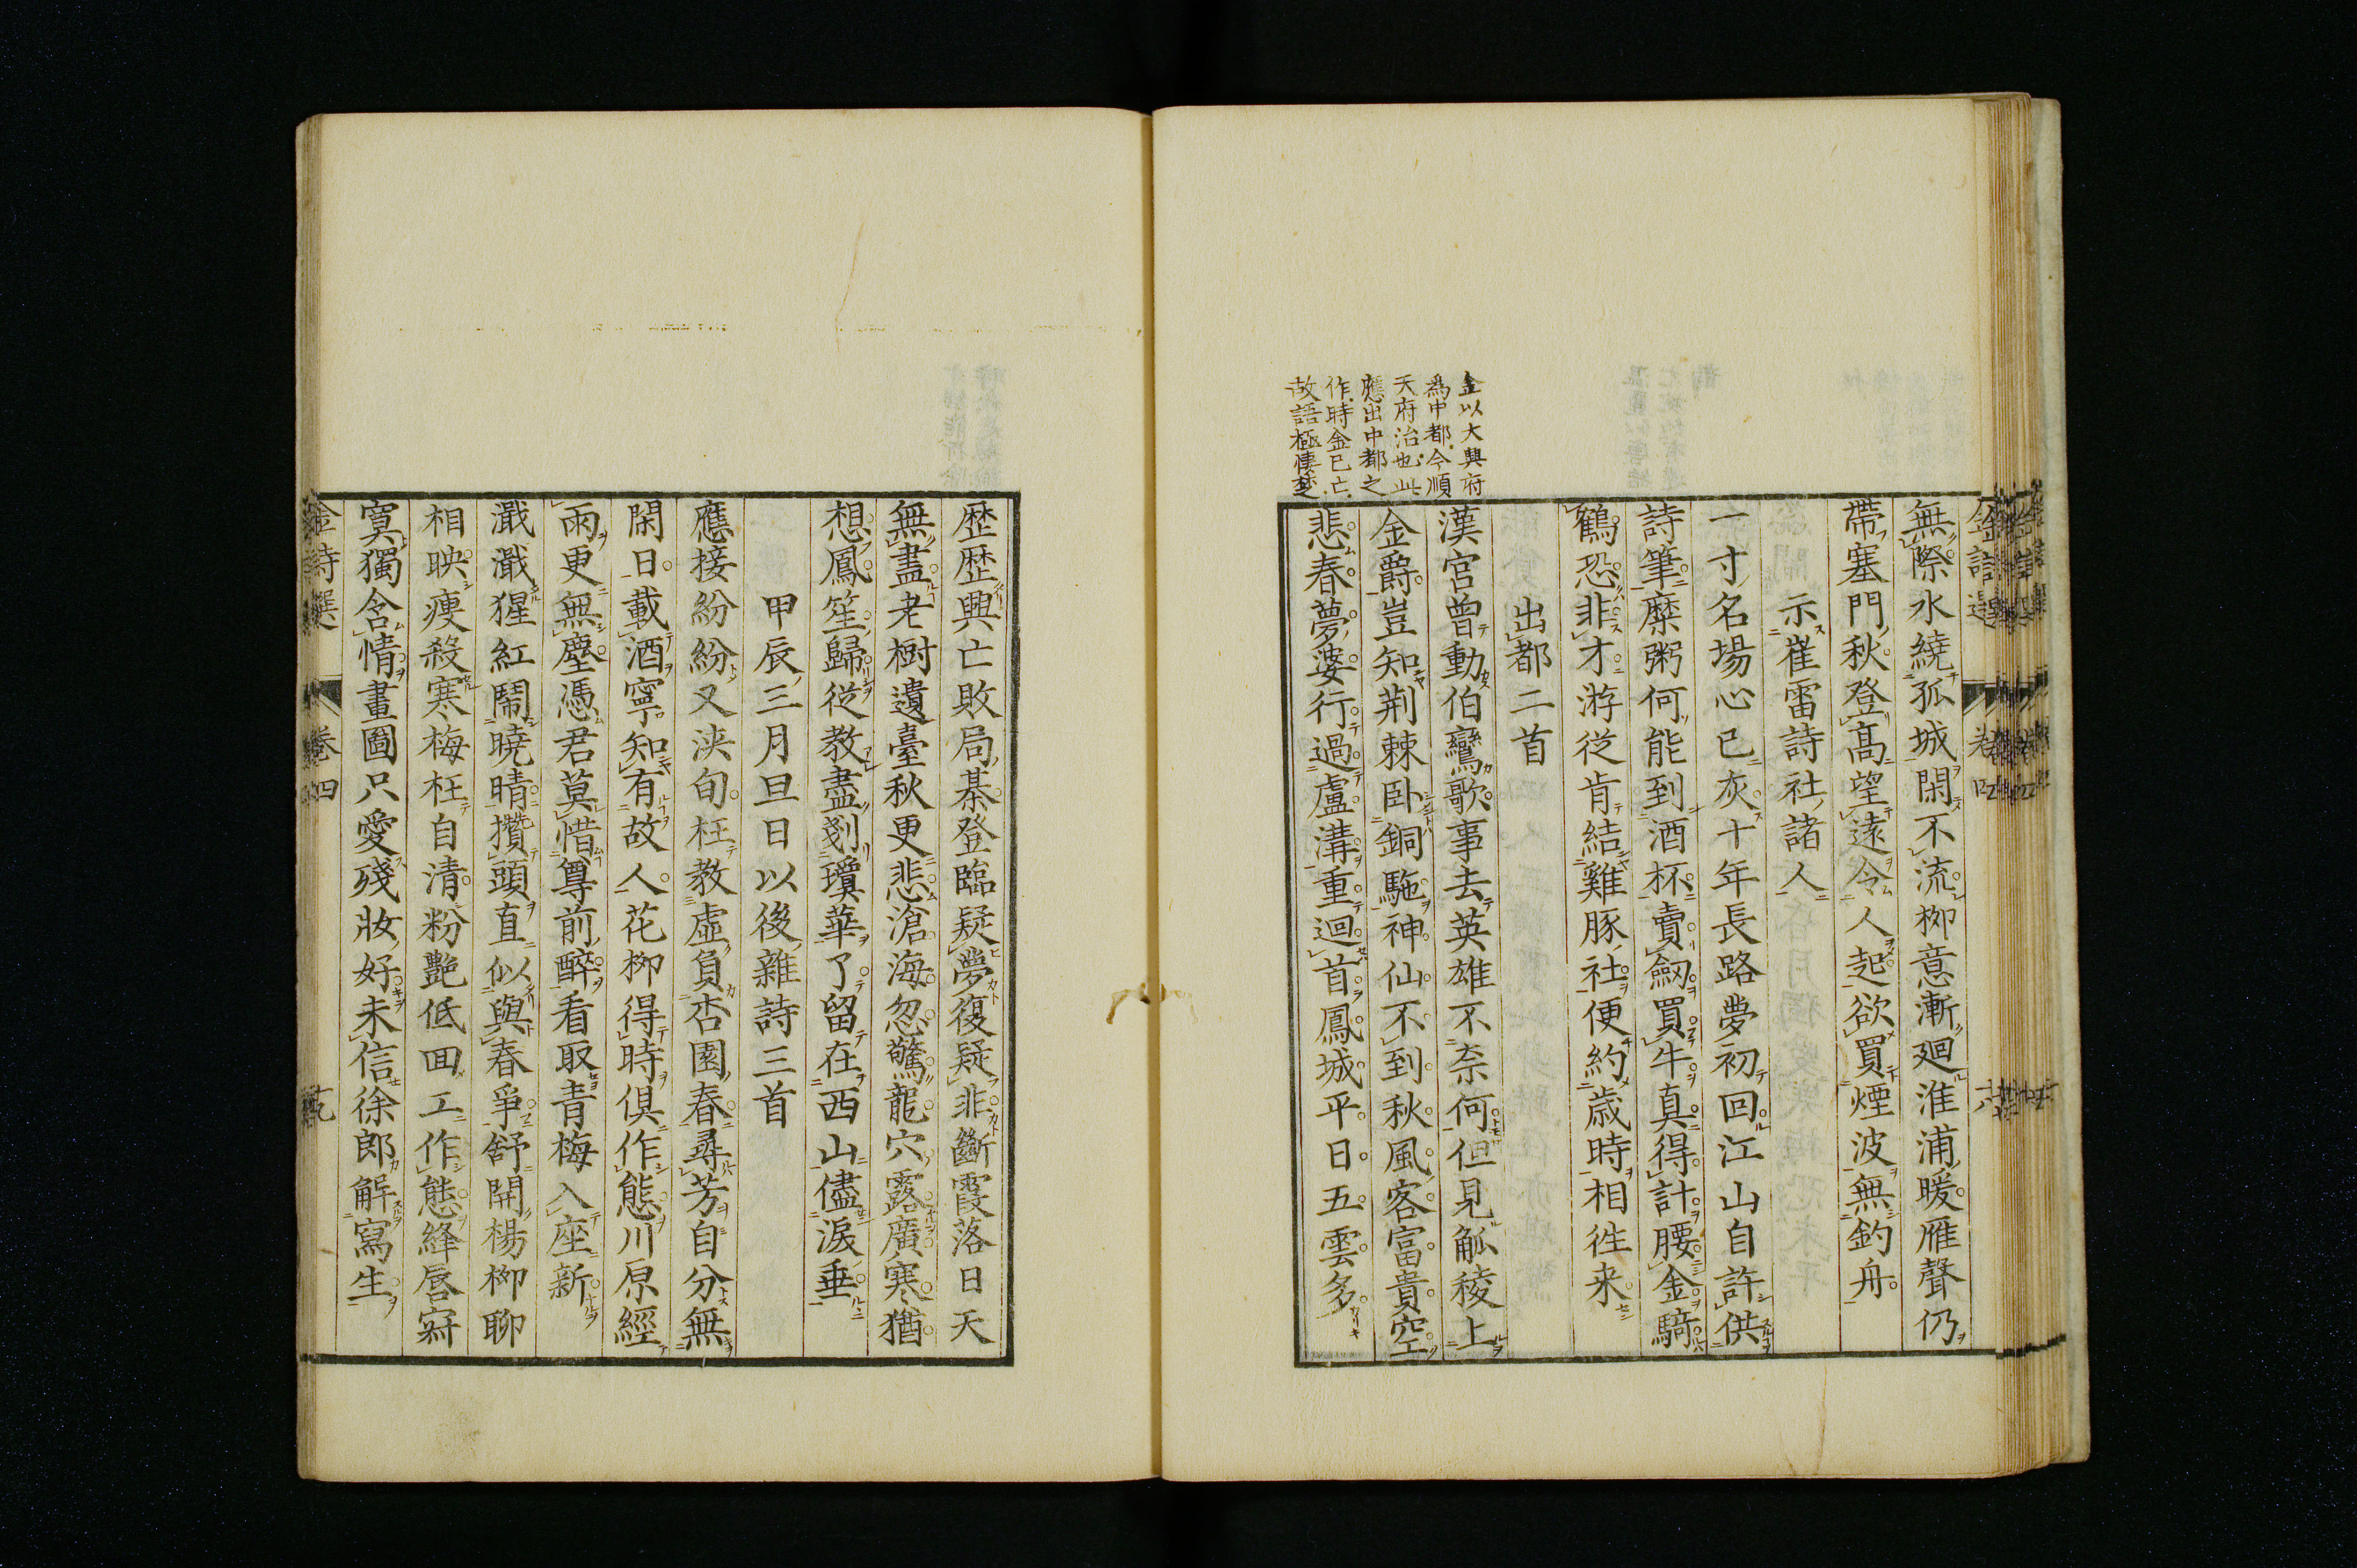 無際水繞孤城閑不流柳意漸廻淮浦暖雁聲仍
帶塞門秋登髙望遠令人起欲買煙波無釣舟
示崔雷詩社諸人
一寸名場心已灰十年長路夢初回江山自許供
詩筆糜粥何能到酒杯賣劔買牛真得計腰金騎
鶴恐非才游從肯結雞豚社便約歲時相徃来
出都二首
漢宮曾動伯鸞歌事去英雄不奈何但見觚稜上
金爵豈知荆棘卧銅駞神仙不到秋風客富貴空
悲春夢婆行過盧溝重迴首鳳城平日五雲多
金以大興府
爲中都今順
天府治也此
應出中都之
作時金已亡
故語極悽楚
歴歴興亡敗局棊登臨疑夢復疑非斷霞落日天
無盡老樹遺臺秋更悲滄海忽驚龍穴露廣寒猶
想鳳笙歸從教盡剗瓊華了留在西山儘淚垂
甲辰三月旦日以後雜詩三首
應接紛紛又浹旬枉教虛負杏園春尋芳自分無
閑日載酒寧知有故人花柳得時俱作態川原經
雨更無塵憑君莫惜尊前醉看取青梅入座新
濈濈猩紅鬧曉晴攢頭直似與春爭舒開楊柳聊
相映瘐殺寒梅枉自清粉艷低回工作態絳唇寂
寞獨含情畫圖只愛殘妝好未信徐郎解寫生
金詩選
卷四